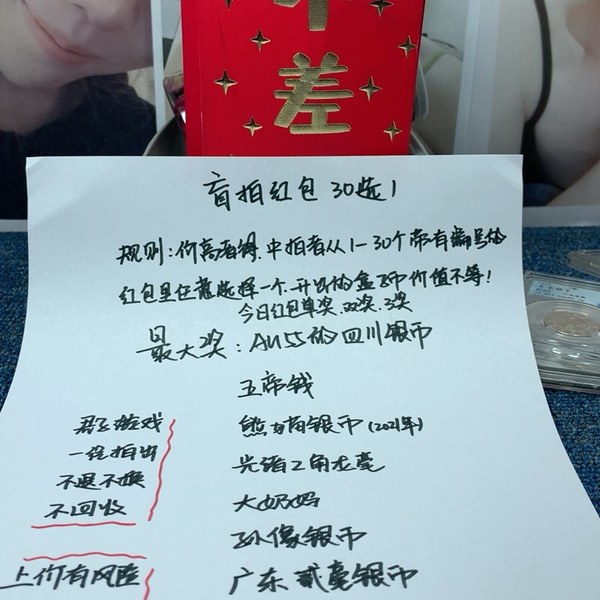 不差
盲拍红包30选1
规则:价高者得.中拍者从1-30个带有编号的
红包里任意选择一个.开出的盒子币价值不等!
今日红包单奖.双奖.3奖
最大奖:AU55的四川银币
五帝钱
君子游戏
熊猫银币(2021年)
一经拍出
光绪2角龙毫
不退不换
大奶妈
不回收
孙像银币
上价有风险
广东贰毫银币